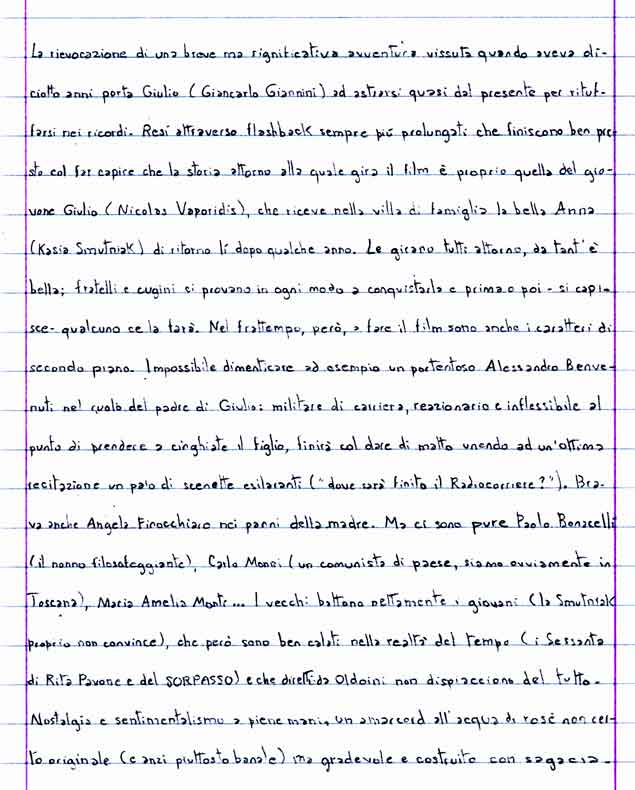 La rievocazione di una breve ma significativa avventura vissuta quando aveva di-
ciotto anni porta Giulio (Giancarlo Giannini) ad astrarsi quasi dal presente per rituf-
farsi nei ricordi. Resi attraverso flashback sempre più prolungati che finiscono ben pre
sto col far capire che la storia attorno alla quale gira il film è proprio quella del gio-
vane Giulio (Nicolas Vaporidis), che riceve nella villa di famiglia la bella Anna
(Kasia Smutniak) di ritorno lì dopo qualche anno. Le girano tutti attorno, da tant'è
bella; fratelli e cugini ci provano in ogni modo a conquistarla e prima o poi - si capi-
sce- qualcuno ce la farà. Nel frattempo, però, a fare il film sono anche i caratteri di
secondo piano. Impossibile dimenticare ad esempio un portentoso Alessandro Benve-
nuti nel ruolo del padre di Giulio: militare di carriera, reazionario e inflessibile al
punto di prendere a cinghiate il figlio, finirà col dare di matto unendo ad un'ottima
recitazione un paio di scenette esilaranti ("dove sarà finito il Radiocorriere?"). Bra-
va anche Angela Finocchiaro nei panni della madre. Ma ci sono pure Paolo Bonacelli
(il nonno filosofeggiante), Carlo Monni (un comunista di paese, siamo ovviamente in
Toscana), Maria Amelia Monti... I vecchi battono nettamente i giovani (la Smutniak
proprio non convince), che però sono ben calati nella realtà del tempo (i Sessanta
di Rita Pavone e del SORPASSO) e che diretti da Oldoini non dispiacciono del tutto.
Nostalgia e sentimentalismo a piene mani, un amarcord all'acqua di rose non cer-
to originale (e anzi piuttosto banale) ma gradevole e costruito con sagacia.